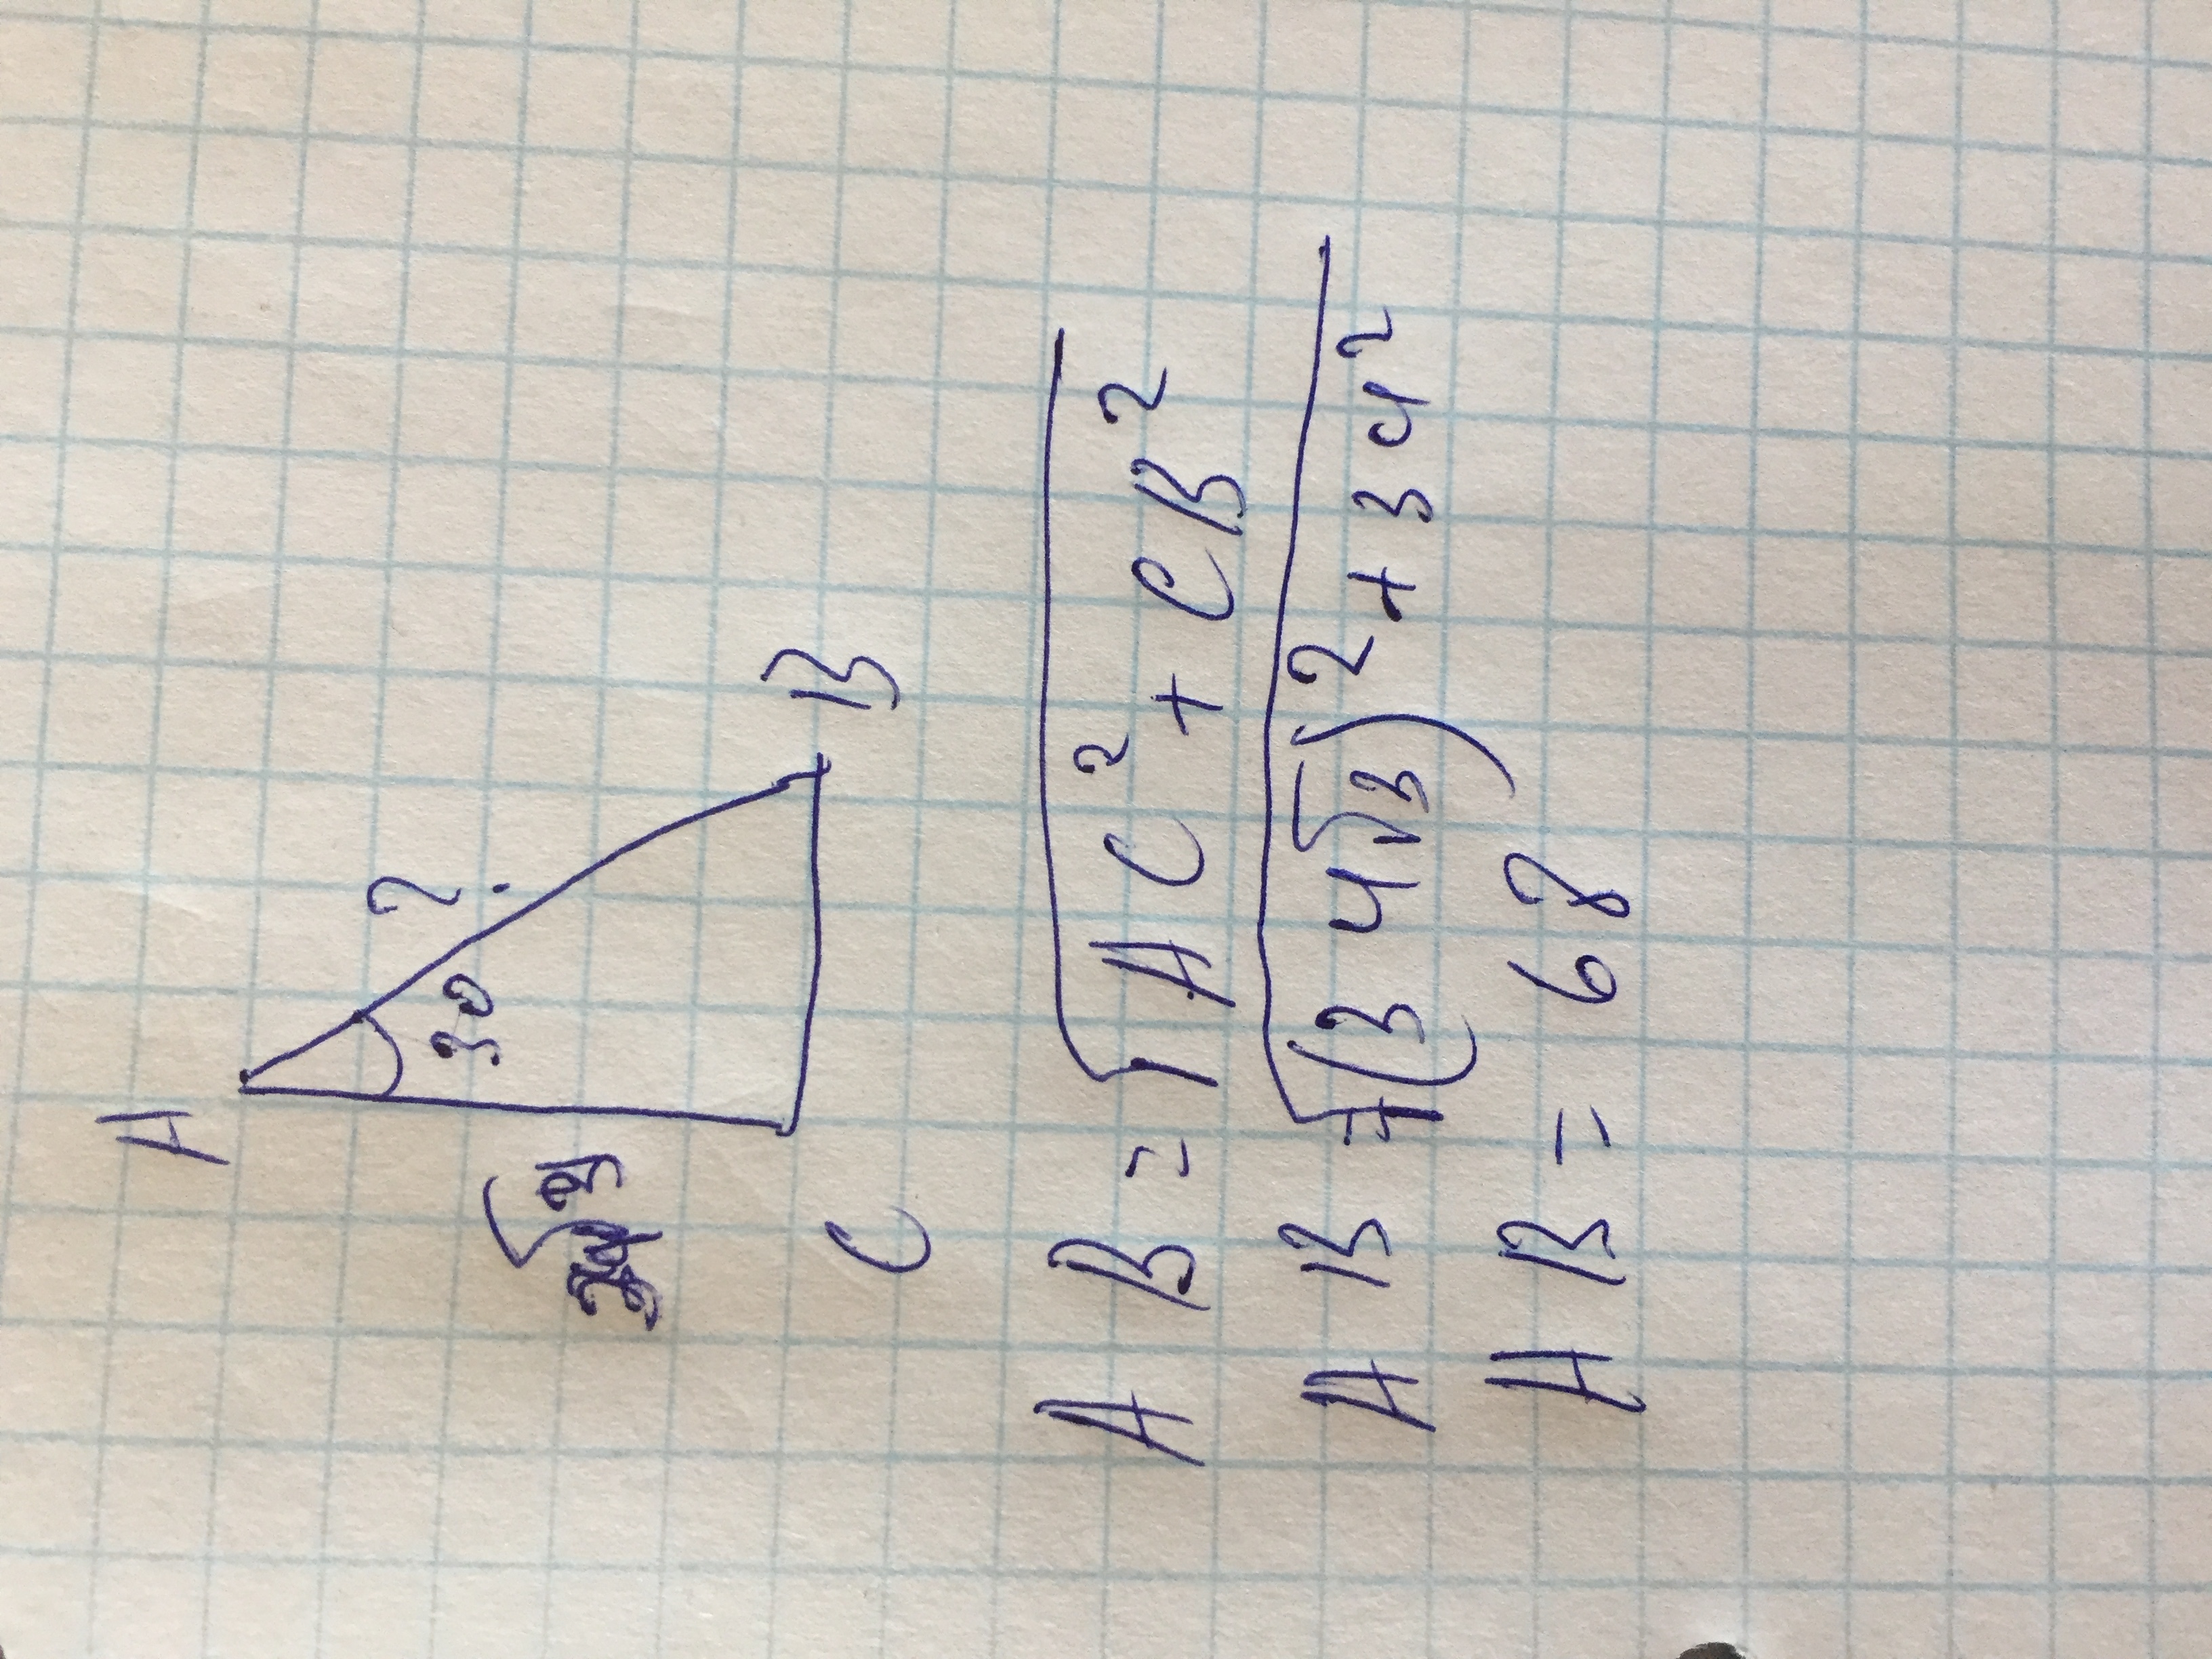 A
?
30
√3
C
B
AB = √AC² + CB²
AB = √(34√3)² + 34²
AB = 68